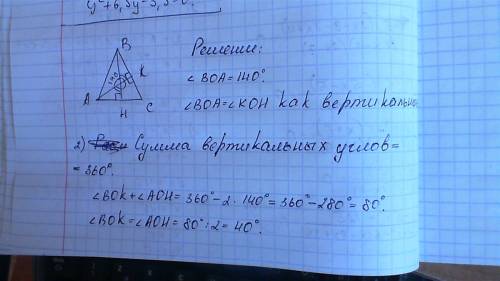 Решение:
B
140°
K
∠BOA=140°.
A
H
C
∠BOA=∠KOH как вертикальны
2) Сумма вертикальных углов=
=360°.
∠BOK+∠AOH=360°-2·140°=360°-280°=80°.
∠BOK=∠AOH=80°:2=40°.